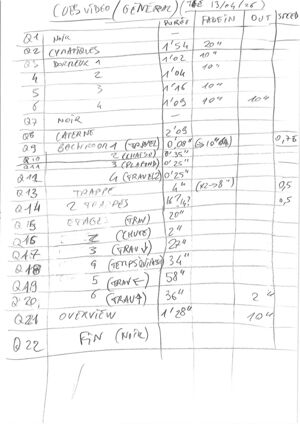 CUES VIDEO / GENERAL / 13/04/26
DURÉE FADE IN OUT SPEED
Q1 NOIR —
Q2 CYMATIQUES 1'54 20"
Q3 1 1'02 10"
4 2 1'04 10"
5 3 1'16 10"
6 4 1'09 10" 10"
Q7 NOIR —
Q8 CAVERNE 2'09
Q9 BACKROOM 1 (TRAVEL) 0'08" 0,76
Q10 2 (CHAISE) 0'35"
Q11 3 (PLAFOND) 0'25"
Q12 4 (TRAVEL2) 0'25"
Q13 TRAPPE 4" (x2→8") 0,5
Q14 2 TRAPPES 0,5
Q15 ETAGES (TRAV) 20"
Q16 2 (CHUTE) 2"
Q17 3 (TRAV↓) 22"
Q18 4 34"
Q19 5 (TRAV←) 58"
Q20 6 (TRAV↑) 36" 2"
Q21 OVERVIEW 1'28" 10"
Q22 FIN (NOIR)